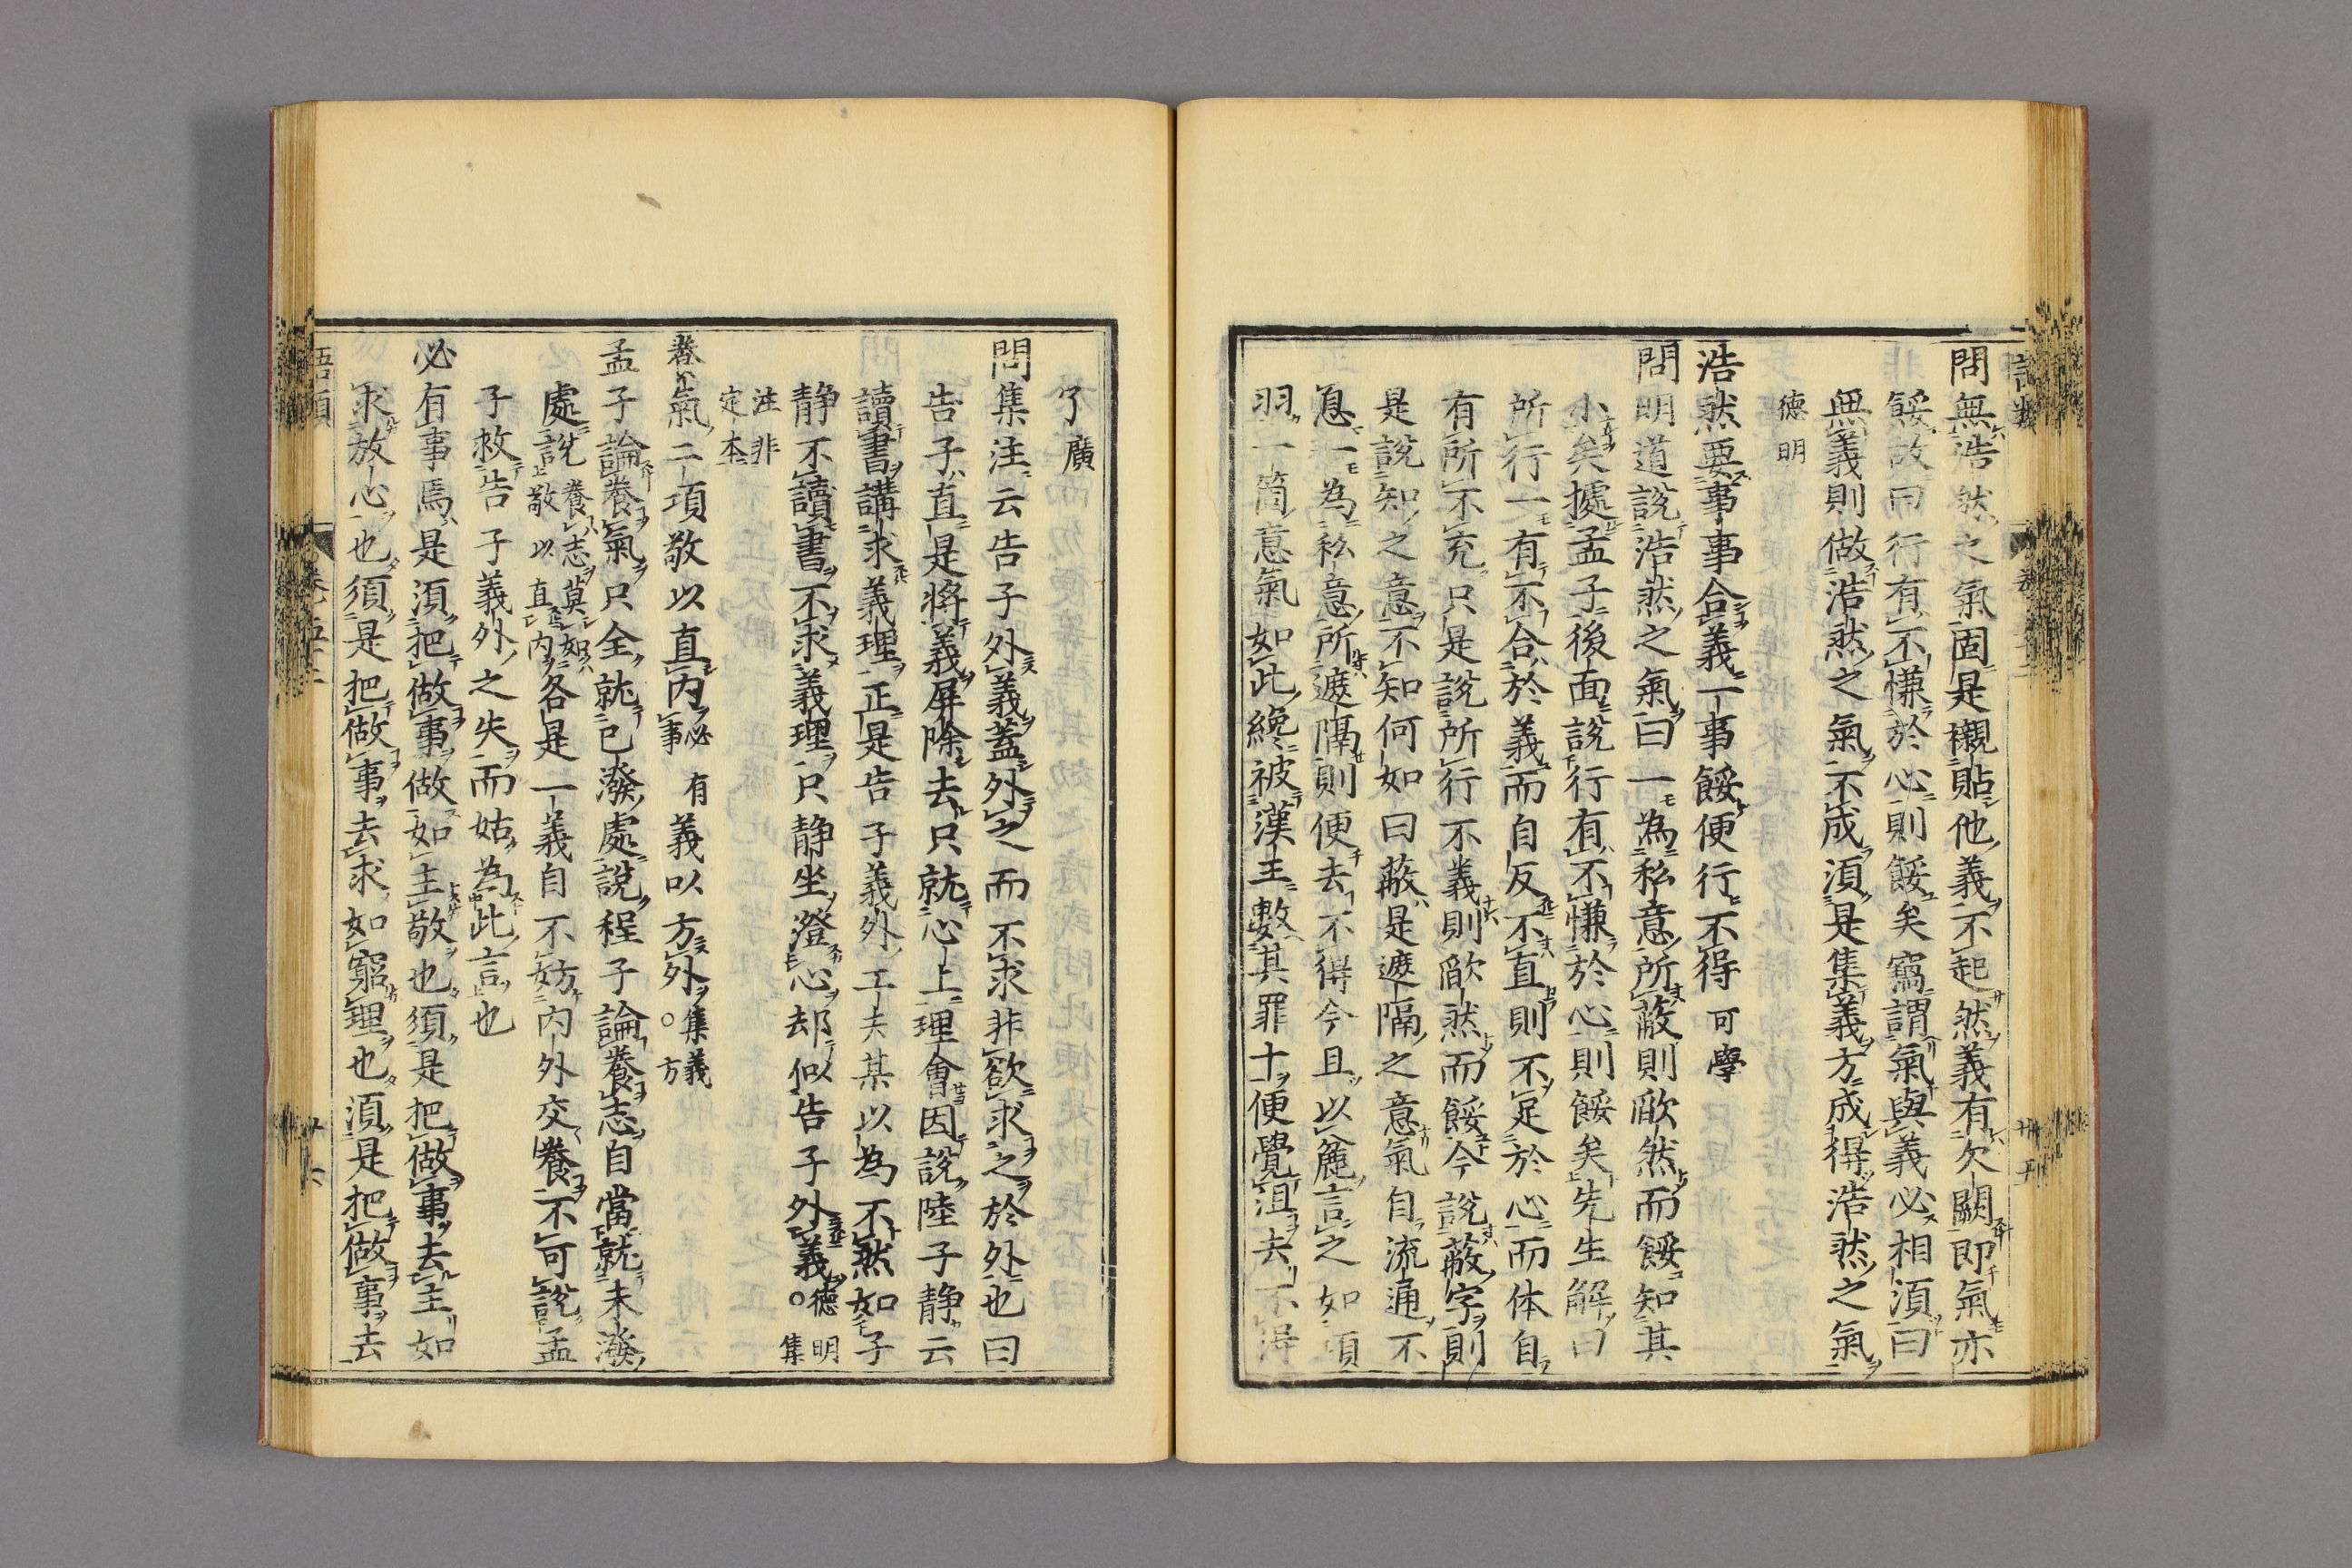 問無浩然之氣固是襯貼他義不起然義有欠闕即氣亦
餒故曰行有不慊於心則餒矣竊謂氣與義必相須曰
無義則做浩然之氣不成須是集義方成得浩然之氣
德明
浩然要事事合義一事餒便行不得可學
問明道說浩然之氣曰一為私意所蔽則欿然而餒知其
小矣據孟子後面說行有不慊於心則餒矣先生解曰
所行一有不合於義而自反不直則不足於心而体自
有所不充只是說所行不義則欿然而餒今說蔽字則
是說知之意不知何如曰蔽是遮隔之意氣自流通不
息一為私意所遮隔則便去不得今且以麄言之如項
羽一箇意氣如此纔被漢王數其罪十便覺沮去不得
了廣
問集注云告子外義蓋外之而不求非欲求之於外也曰
告子直是將義屏除去只就心上理會因說陸子静云
讀書講求義理正是告子義外工夫某以為不然如子
静不讀書不求義理只静坐澄心却似告子外義德明○集
注非定本
養氣二項敬以直内必有事義以方外集義○方
孟子論養氣只全就已潑處說程子論養志自當就未潑
處說養志莫如敬以直内各是一義自不妨内外交養不可說孟
子救告子義外之失而姑為此言也
必有事焉是須把做事做如主敬也須是把做事去主如
求放心也須是把做事去求如窮理也須是把做事去
語類
卷五十二